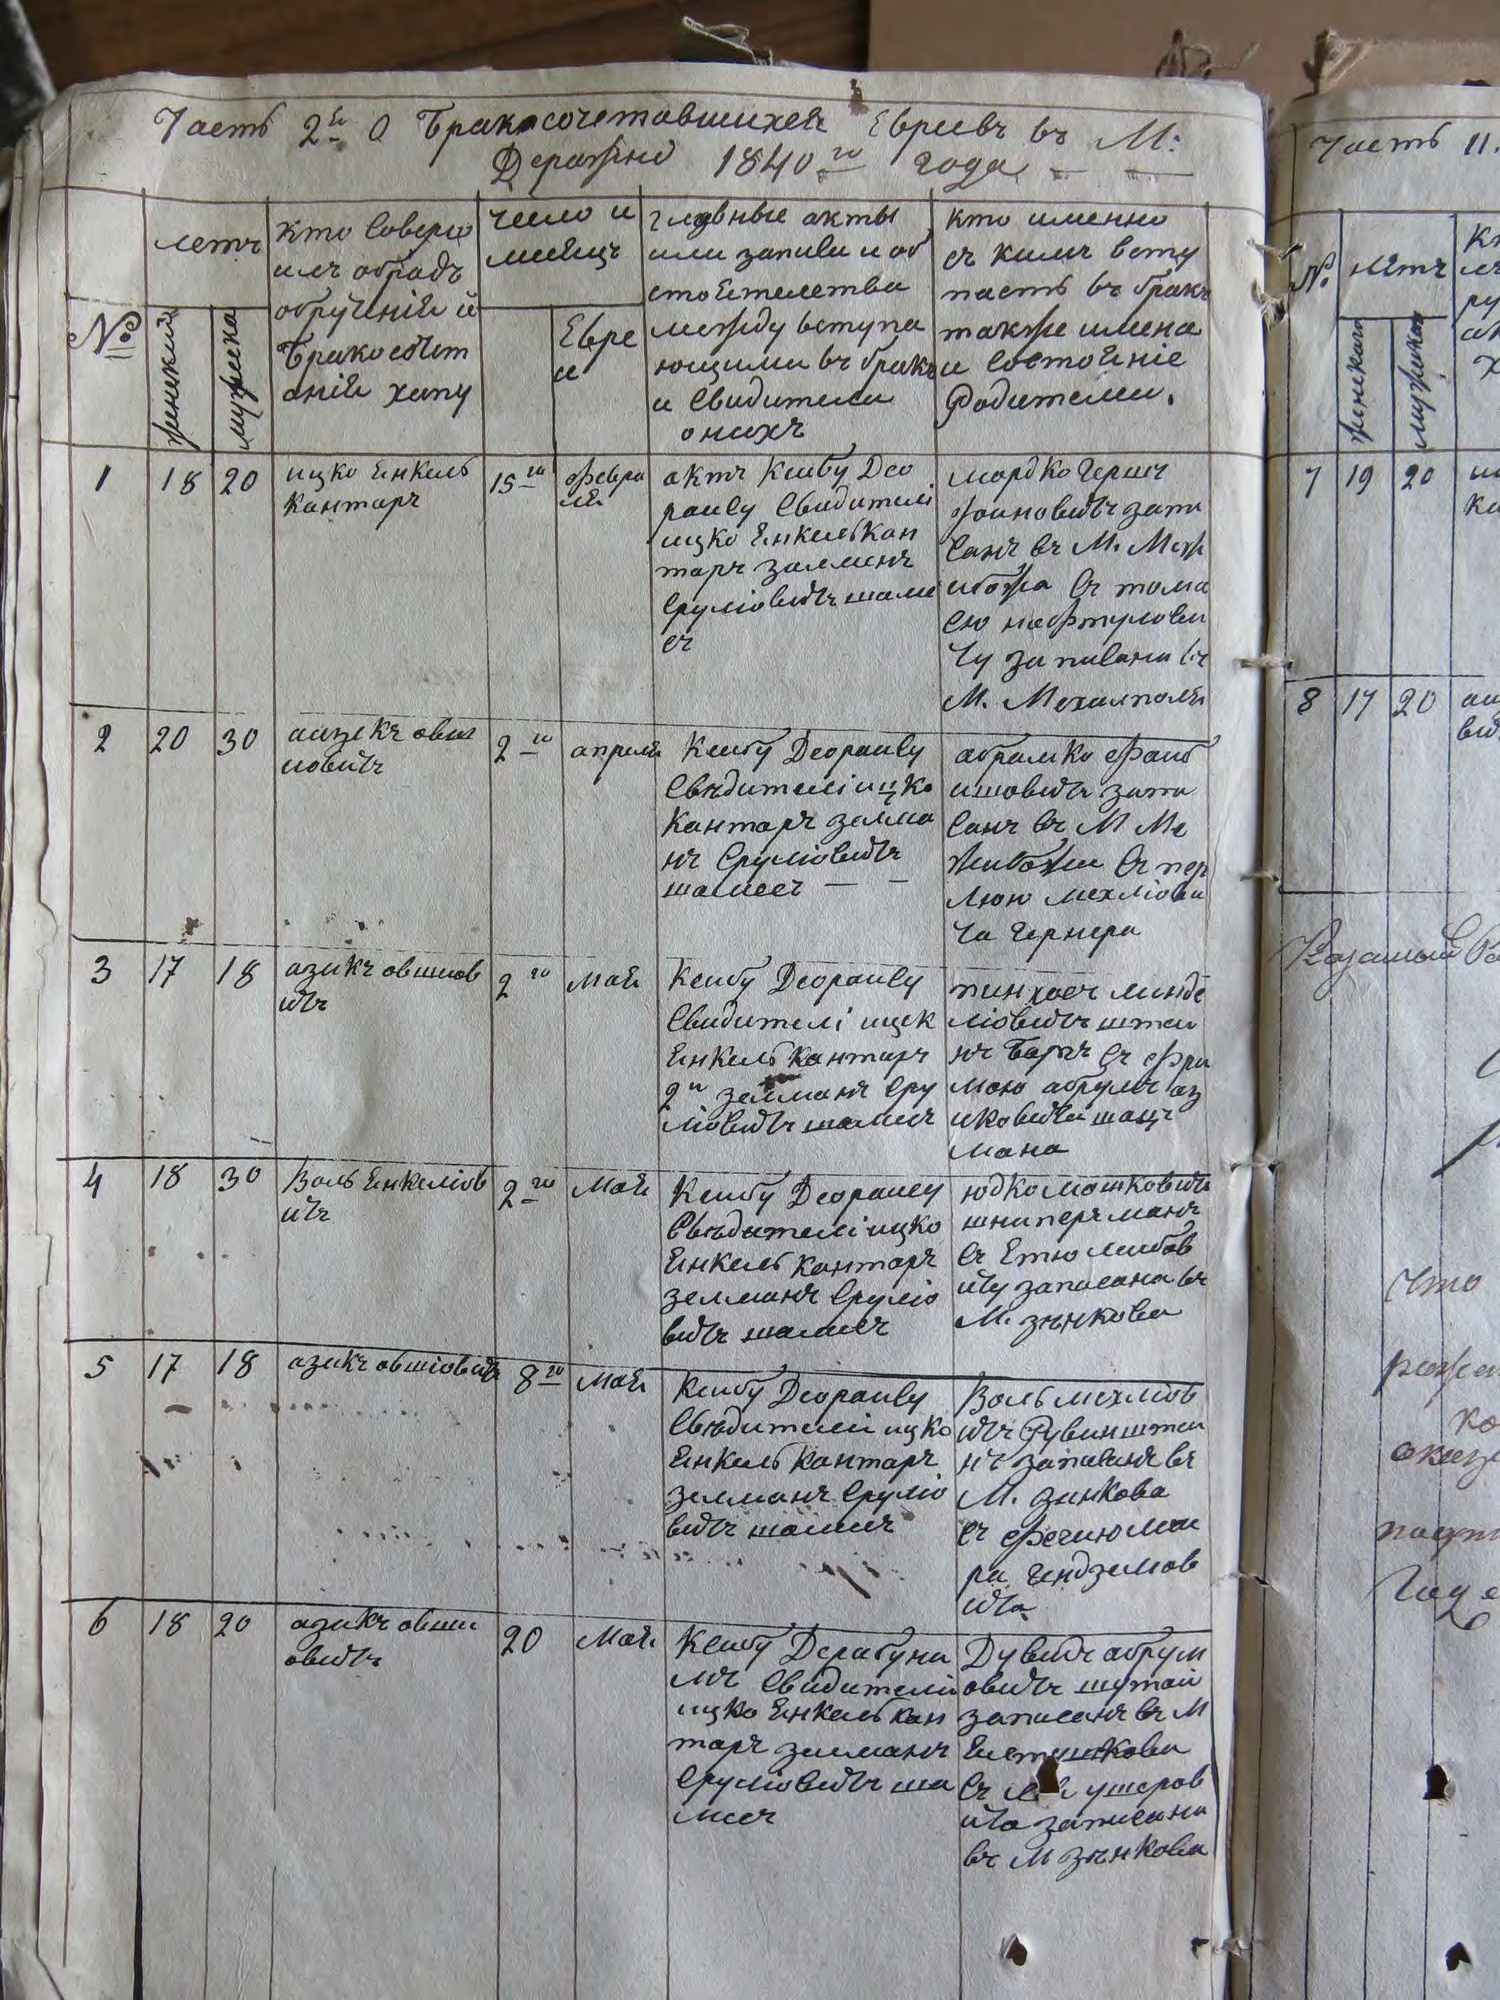 Часть 2я О Бракосочетавшихся Евреевъ въ М:
Деражне 1840го года
№
летъ
женская
мужеска
кто соверш
илъ обрадъ
обручнія и
Бракосочет
анія хупу
число и
месяцъ
Евре
и
главные акты
или записи и об
стоятелства
между вступа
ющими въ бракъ
и Свидители
онихъ
кто именно
съ кимъ всту
паетъ въ бракъ
также имена
и состояніе
Родителеи.
1
18
20
ицко Енкель
кантаръ
15го
Февра
ля
актъ Ксибу Део
раису Свидителі
ицко Енкель Кан
таръ залманъ
Сруліовичъ шами
съ
мордко Герш
запи
санъ въ М. Меж
ибожа съ
сю нафтулови
чу записана въ
М. Михалполя
2
20
30
аизекъ овш
иовичъ
2го
апреля
Ксибу Деораису
Свидителі ицко
Кантаръ залма
нъ Сруліовичъ
шамесъ
абрамко Фаиб
ишовичъ запи
санъ въ М Ме
жибожи съ пер
лою мехліови
ча Гернера
3
17
18
азикъ овшиов
ичъ
2го
Мая
Ксибу Деораису
Свидителі ицек
Енкель кантаръ
2й зелманъ Сру
ліовичъ шамисъ
пинхосъ минде
ліовичъ штеи
нъ Баргъ съ Фри
мою абрумъ аз
иковича шацъ
мана
4
18
30
Воль Енкеліов
ичъ
2го
Мая
Ксибу Деораису
Свидителі ицко
Енкель кантаръ
зелманъ Сруліо
вичъ шамисъ
юдко мошковичъ
шниперъ манъ
съ Етю лиибов
ичу записана въ
М. зинкова
5
17
18
азикъ овшіовичъ
8го
Мая
Ксибу Деораису
Свидителі ицко
Енкель кантаръ
зелманъ Сруліо
вичъ шамисъ
Воль мехліов
ичъ Рувинштеи
нъ записанъ въ
М. зинкова
съ Фегию меи
ра гендзелов
ича
6
18
20
азикъ овши
овичъ
20
Мая
Ксибу Дерабуна
мъ Свидителі
ицко Енкель кан
таръ зилманъ
Сруліовичъ ша
мисъ
Дувидъ абрум
овичъ шутаи
записанъ въ М
съ ушеров
ича записана
въ М зинкова
Часть II.
№
летъ
женская
мужеская
7
19
20
8
17
20
Что